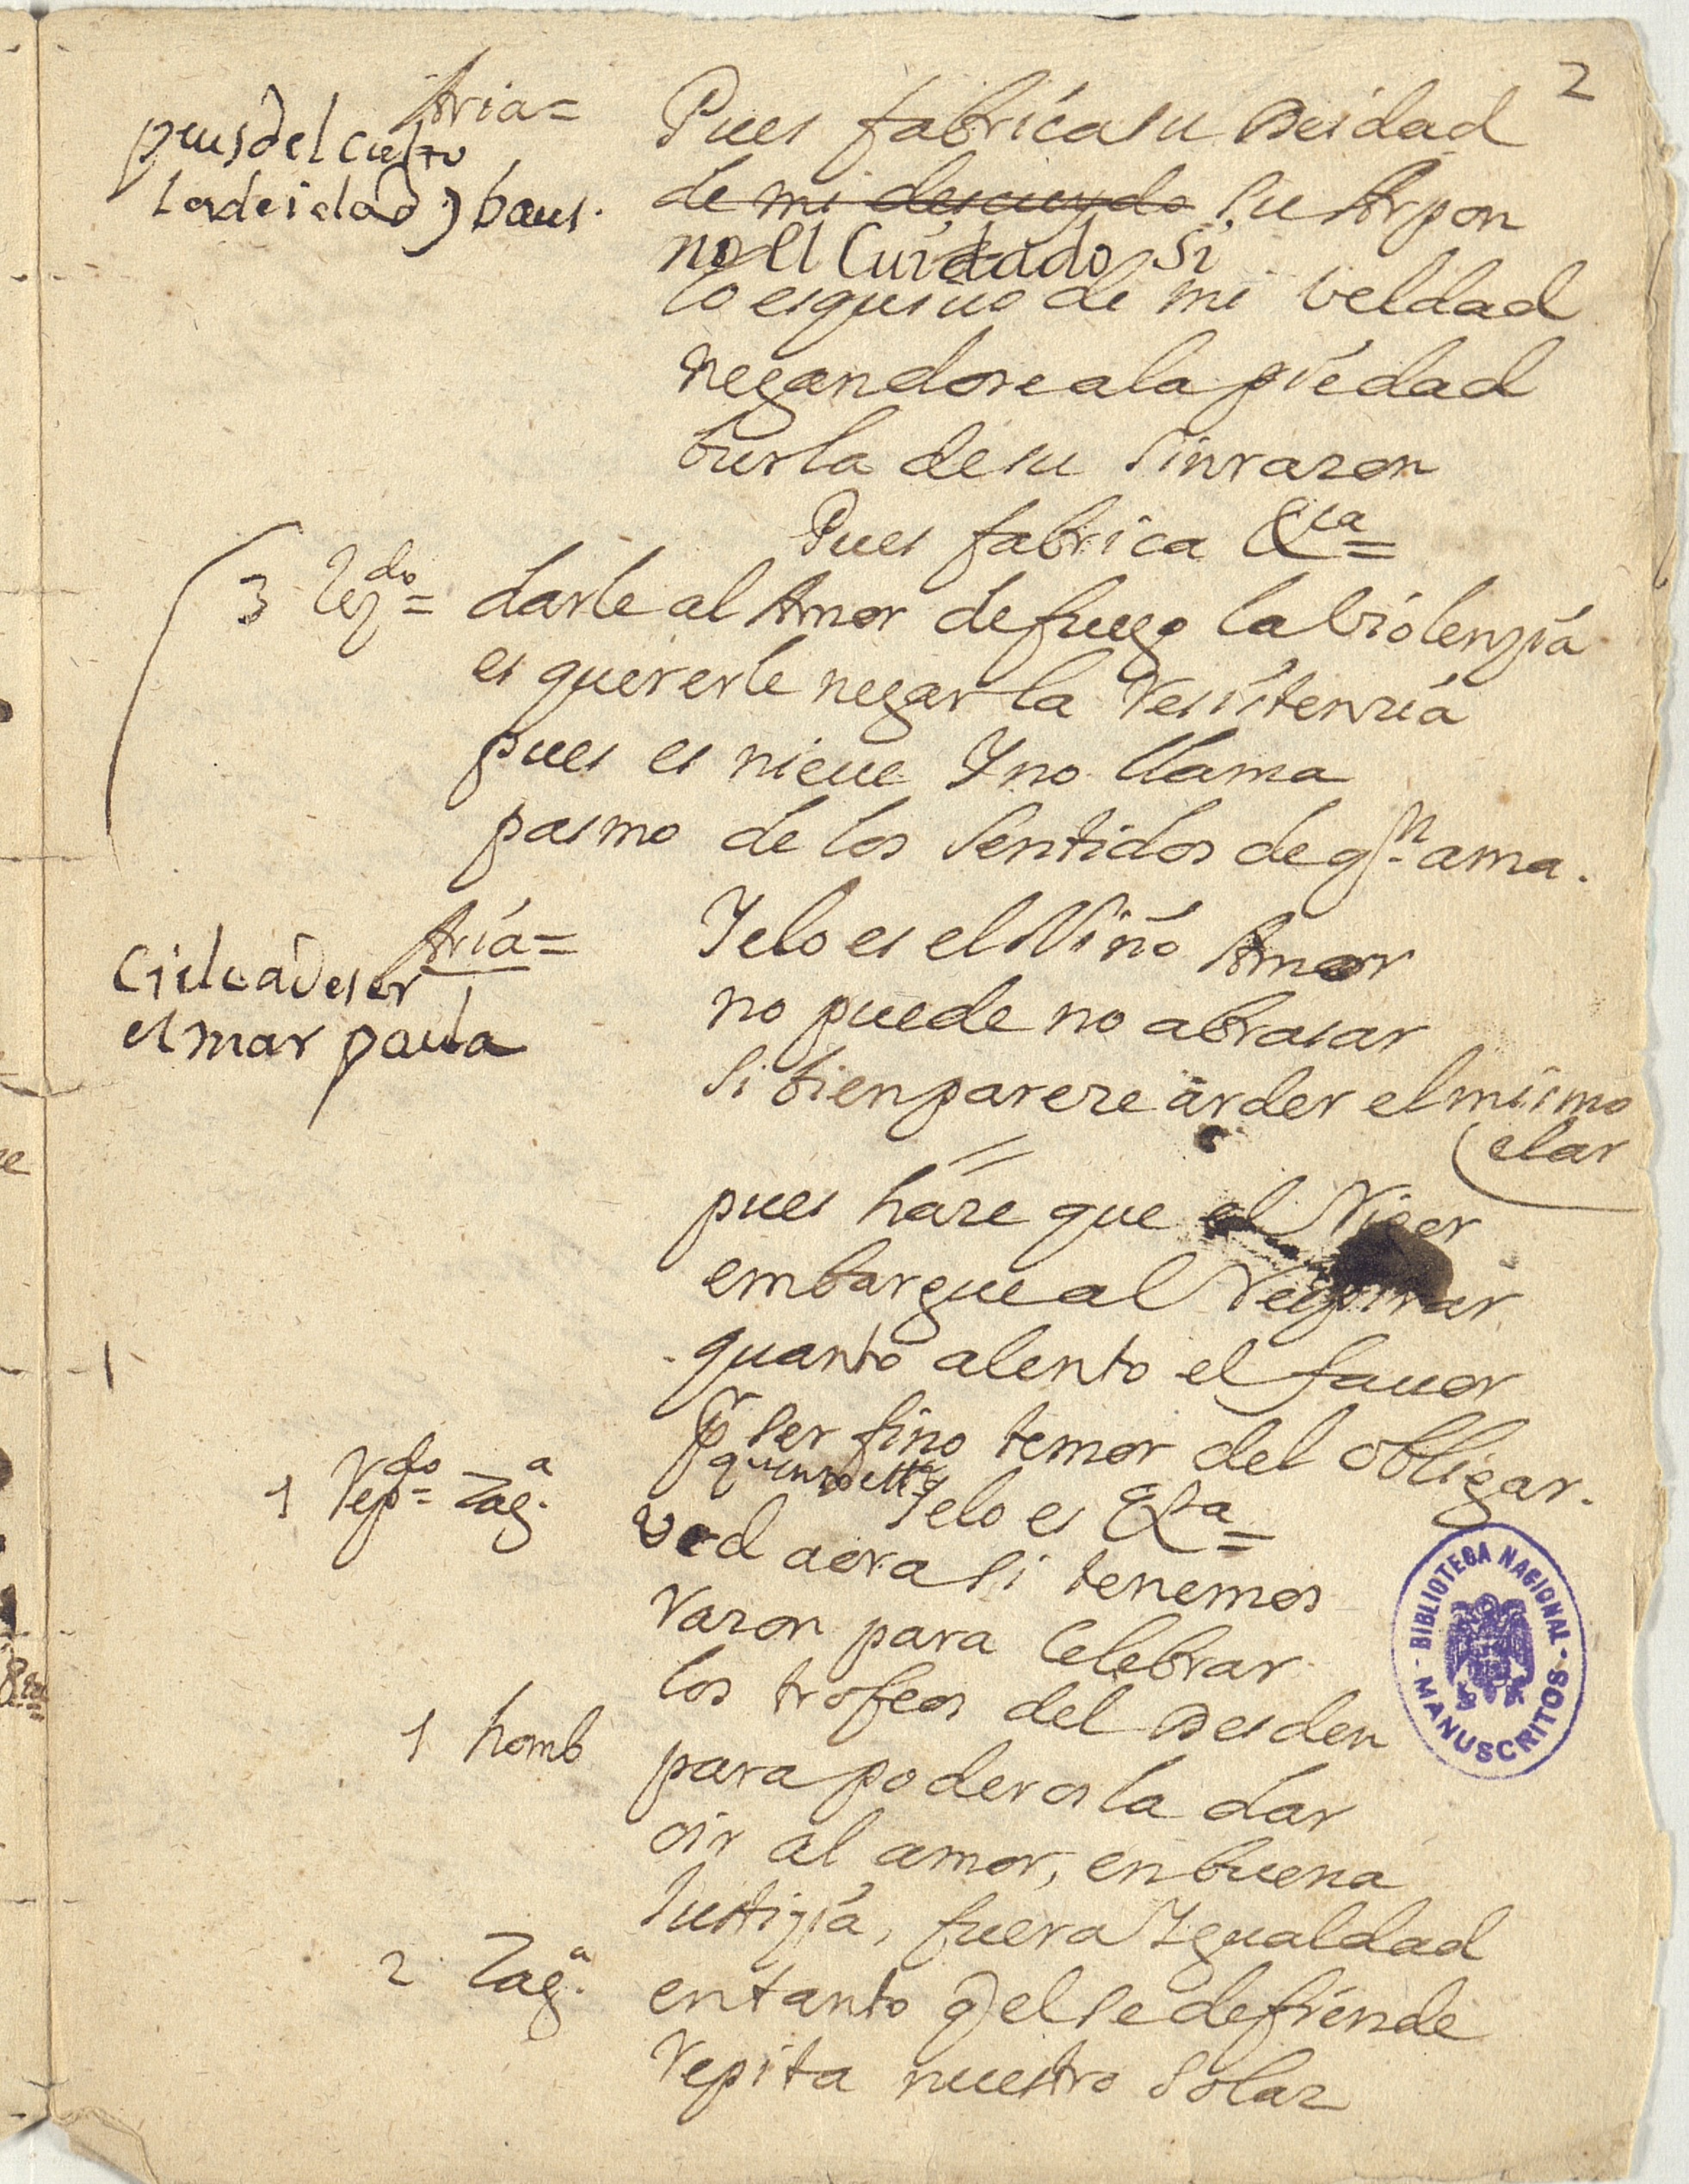 2
Aria= Pues fabrica su Deidad
pues del culto
la deidad) baus.
de mi descuydo su Arpon
no el Cuidado si
lo esquiuo de mi beldad
negandose a la piedad
burla de su sinrazon
Pues fabrica &ca=
3 Rezdo= darle al Amor de fuego la biolenzia
es quererle negar la resistenzia
pues es nieue Y no llama
pasmo de los sentidos de qn ama.
Aria= Yelo es el Niño Amor
Ciega de ser
el mar paula
no puede no abrasar
si bien pareze arder el mismo
(elar
pues haze que el Rigor
embargue al respirar
quanto alento el fauor
pr ser fino temor del obligar.
Yelo es &a=
1 Repdo= Zaga. ved aora si tenemos
razon para Celebrar
los trofeos del Desden
1 homb para poderosla dar
oir al amor, en buena
Justizia, fuera Igualdad
2 Zaga. en tanto q) el se defiende
repita nuestro solaz
BIBLIOTECA NACIONAL
MANUSCRITOS